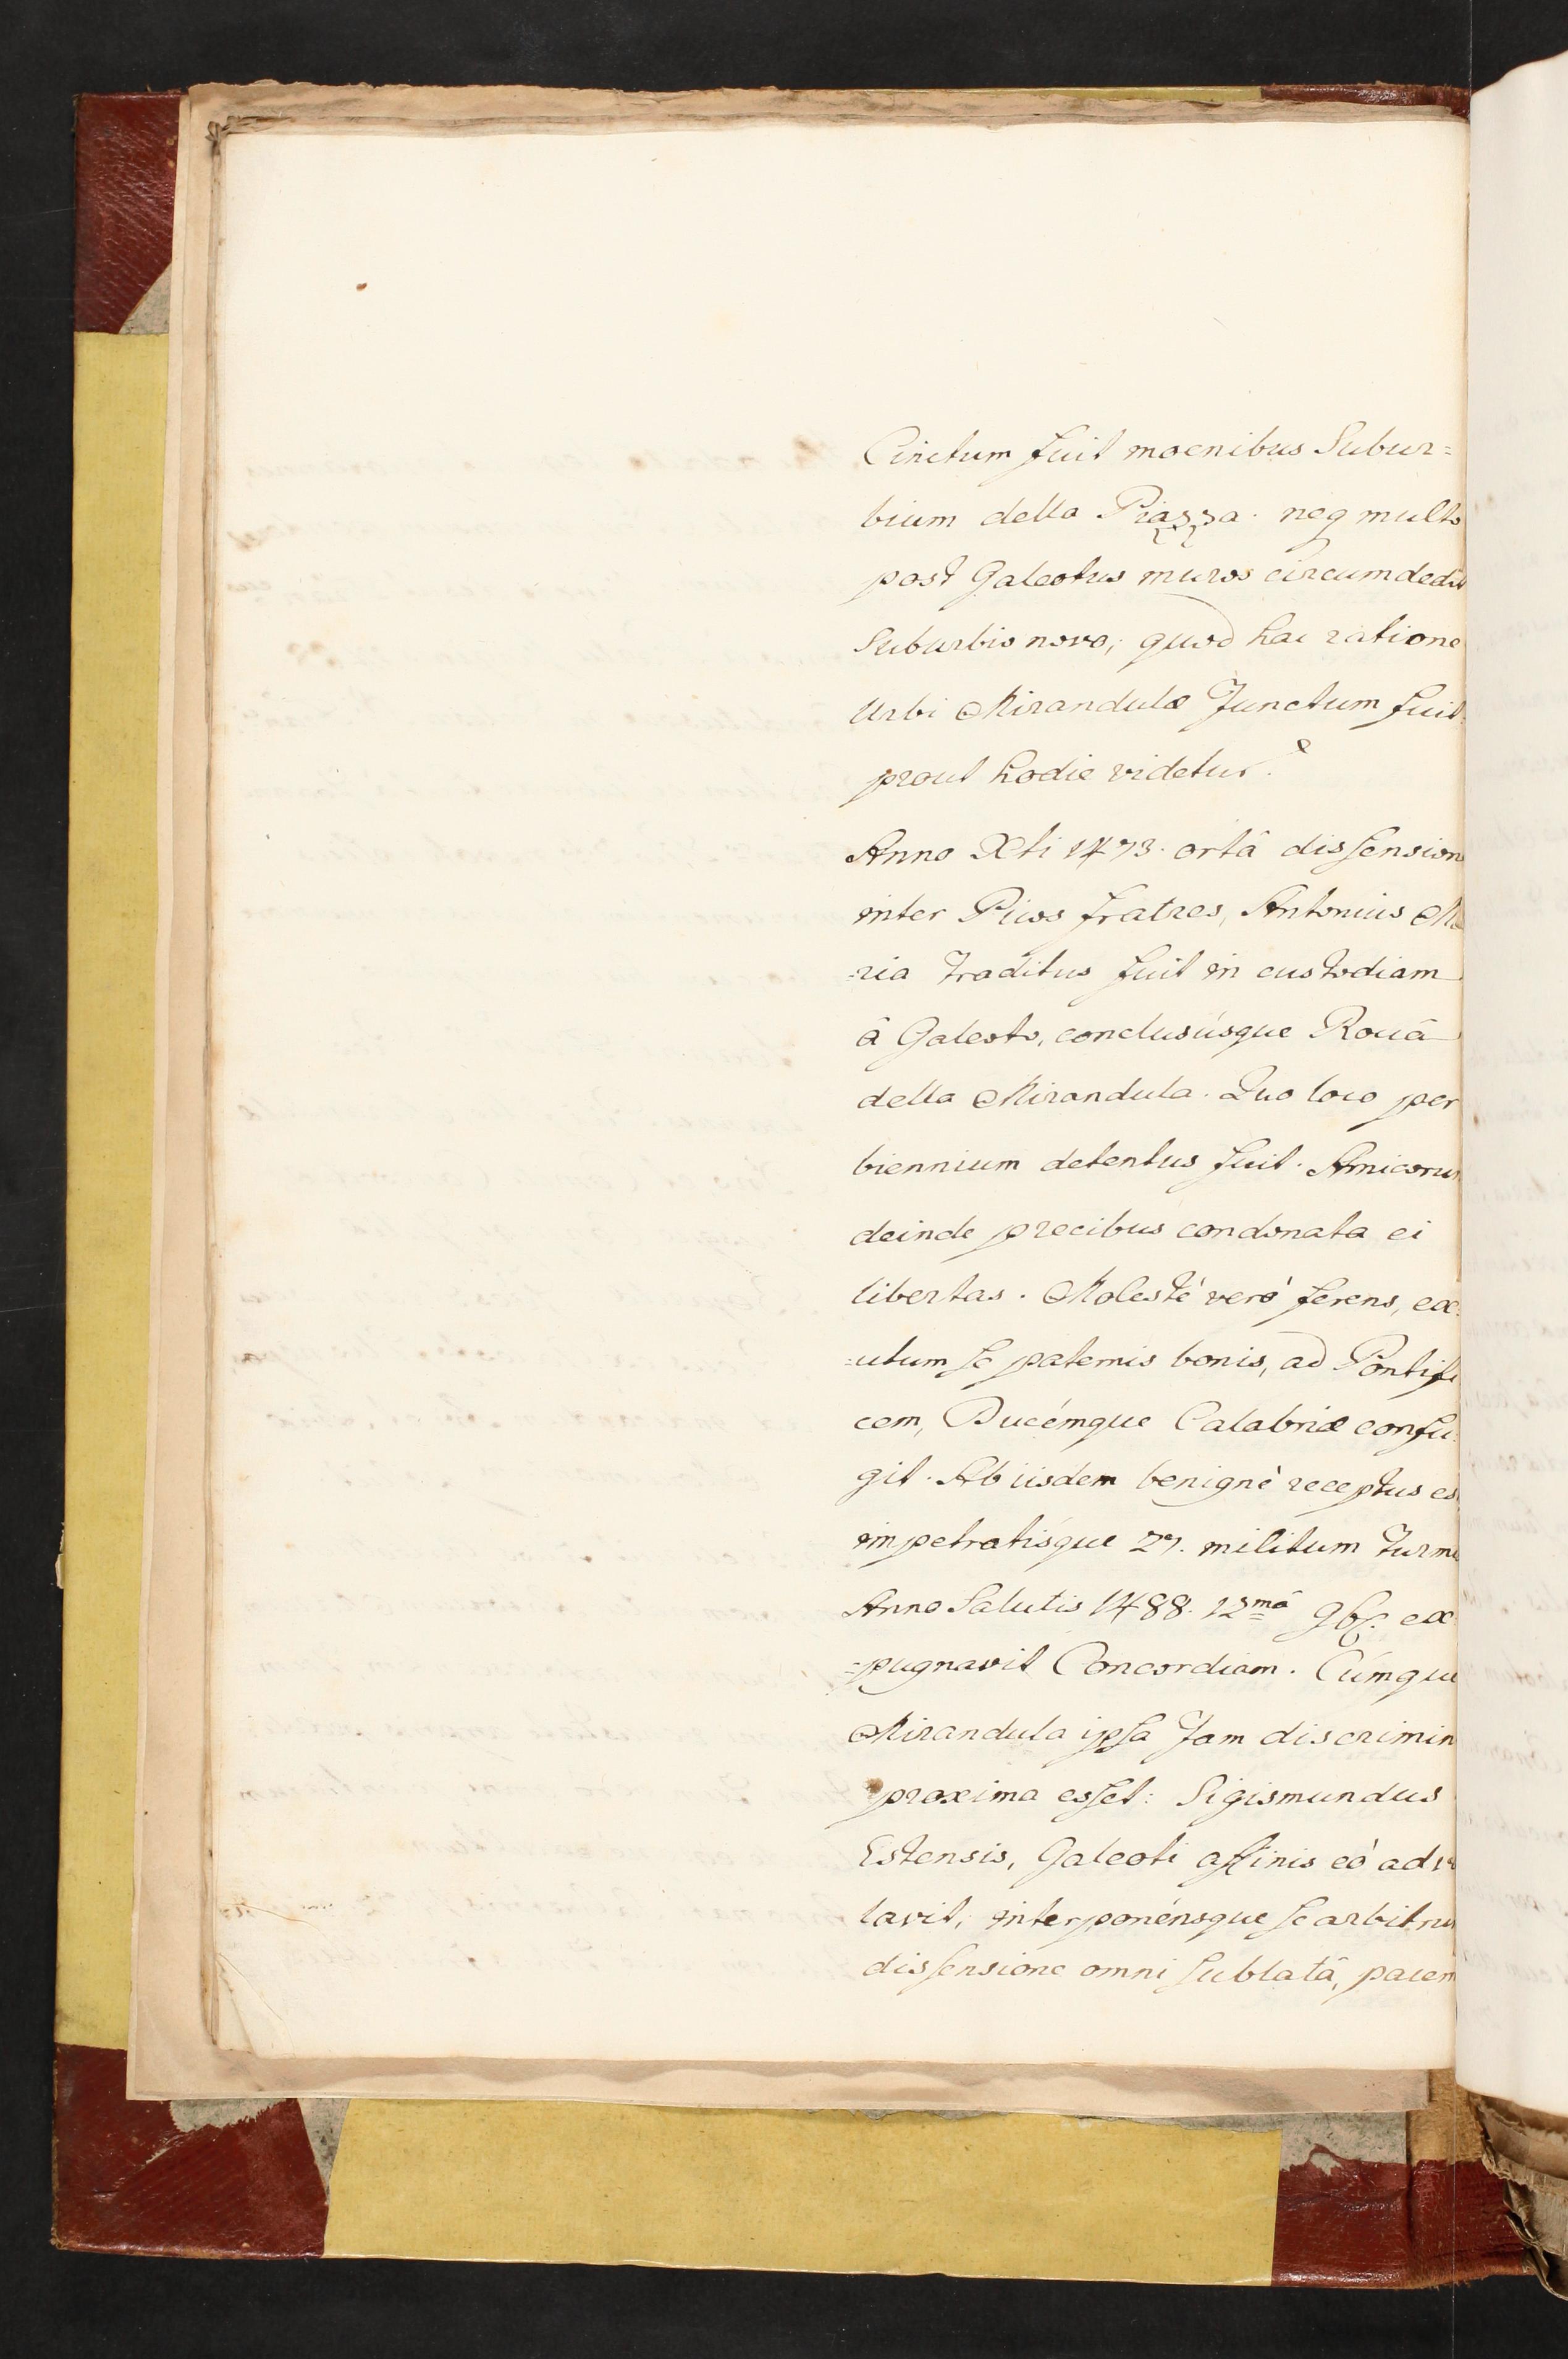 Cinctum fuit moenibus Subur=
bium della Piazza. neq multo
post Galeotus muros circumdedit
Suburbio novo, quod hac ratione
Urbi Mirandulæ Junctum fuit
prout hodie videtur.
Anno Xti 1473. ortâ dissension
inter Picos fratres, Antonius Ma
=ria traditus fuit in custodiam
â Galeoto, conclusúsque Roccâ
della Mirandula. Quo loco per
biennium detentus fuit. Amicorum
deinde precibus condonata ei
libertas. Molesté veró ferens, ex
=utum se paternis bonis, ad Pontifi
cem, Ducémque Calabriæ confu
git. Ab iisdem benignè receptus es
impetratisque 27. militum turmi
Anno Salutis 1488. 12mâ 9bs. ex
=pugnavit Concordiam. Cúmque
Mirandula ipsa Jam discrimin
proxima esset: Sigismundus
Estensis, Galeoti affinis eò advo
lavit, interponénsque se arbitru
dissensione omni sublatâ, pacem